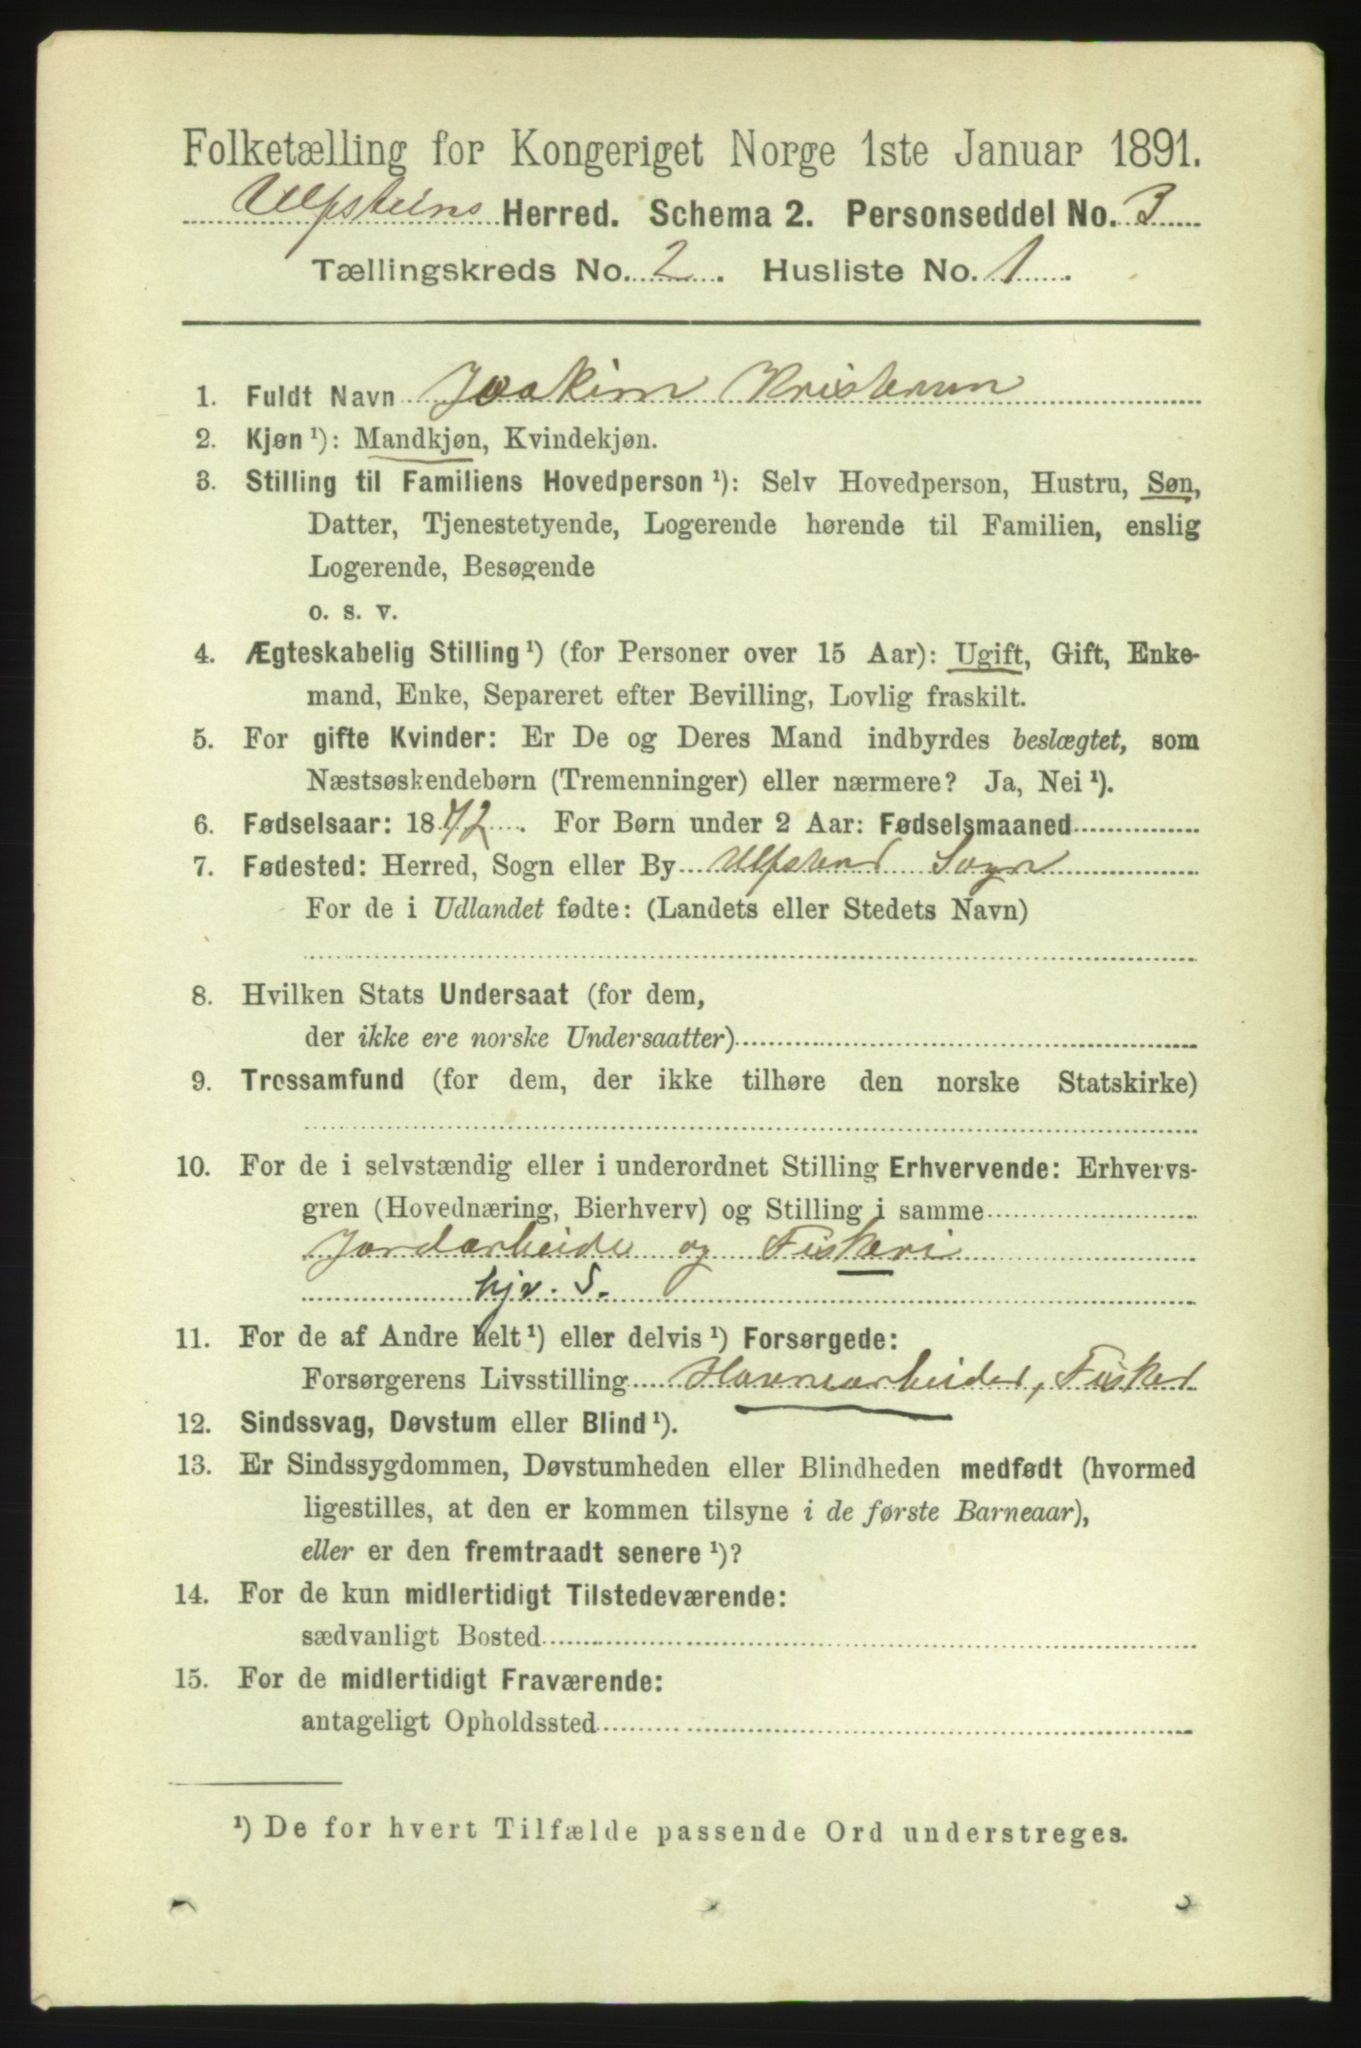 Folketælling for Kongeriget Norge 1ste Januar 1891.
Ulfsteins Herred. Schema 2. Personseddel No. 3
Tællingskreds No. 2. Husliste No. 1.
1. Fuldt Navn Joakim
2. Kjøn ¹): Mandkjøn, Kvindekjøn.
3. Stilling til Familiens Hovedperson ¹): Selv Hovedperson, Hustru, Søn,
Datter, Tjenestetyende, Logerende hørende til Familien, enslig
Logerende, Besøgende
o. s. v.
4. Ægteskabelig Stilling ¹) (for Personer over 15 Aar): Ugift, Gift, Enke-
mand, Enke, Separeret efter Bevilling, Lovlig fraskilt.
5. For gifte Kvinder: Er De og Deres Mand indbyrdes beslægtet, som
Næstsøskendebørn (Tremenninger) eller nærmere? Ja, Nei ¹).
6. Fødselsaar: 1872. For Børn under 2 Aar: Fødselsmaaned
7. Fødested: Herred, Sogn eller By Ulfstens Sogn
For de i Udlandet fødte: (Landets eller Stedets Navn)
8. Hvilken Stats Undersaat (for dem,
der ikke ere norske Undersaatter)
9. Trossamfund (for dem, der ikke tilhøre den norske Statskirke)
10. For de i selvstændig eller i underordnet Stilling Erhvervende: Erhvervs-
gren (Hovednæring, Bierhverv) og Stilling i samme
Jordarbeide og Fiskeri
hjv. S.
11. For de af Andre helt ¹) eller delvis ¹) Forsørgede:
Forsørgerens Livsstilling Havnearbeider, Fisker
12. Sindssvag, Døvstum eller Blind ¹).
13. Er Sindssygdommen, Døvstumheden eller Blindheden medfødt (hvormed
ligestilles, at den er kommen tilsyne i de første Barneaar),
eller er den fremtraadt senere ¹)?
14. For de kun midlertidigt Tilstedeværende:
sædvanligt Bosted
15. For de midlertidigt Fraværende:
antageligt Opholdssted
¹) De for hvert Tilfælde passende Ord understreges.